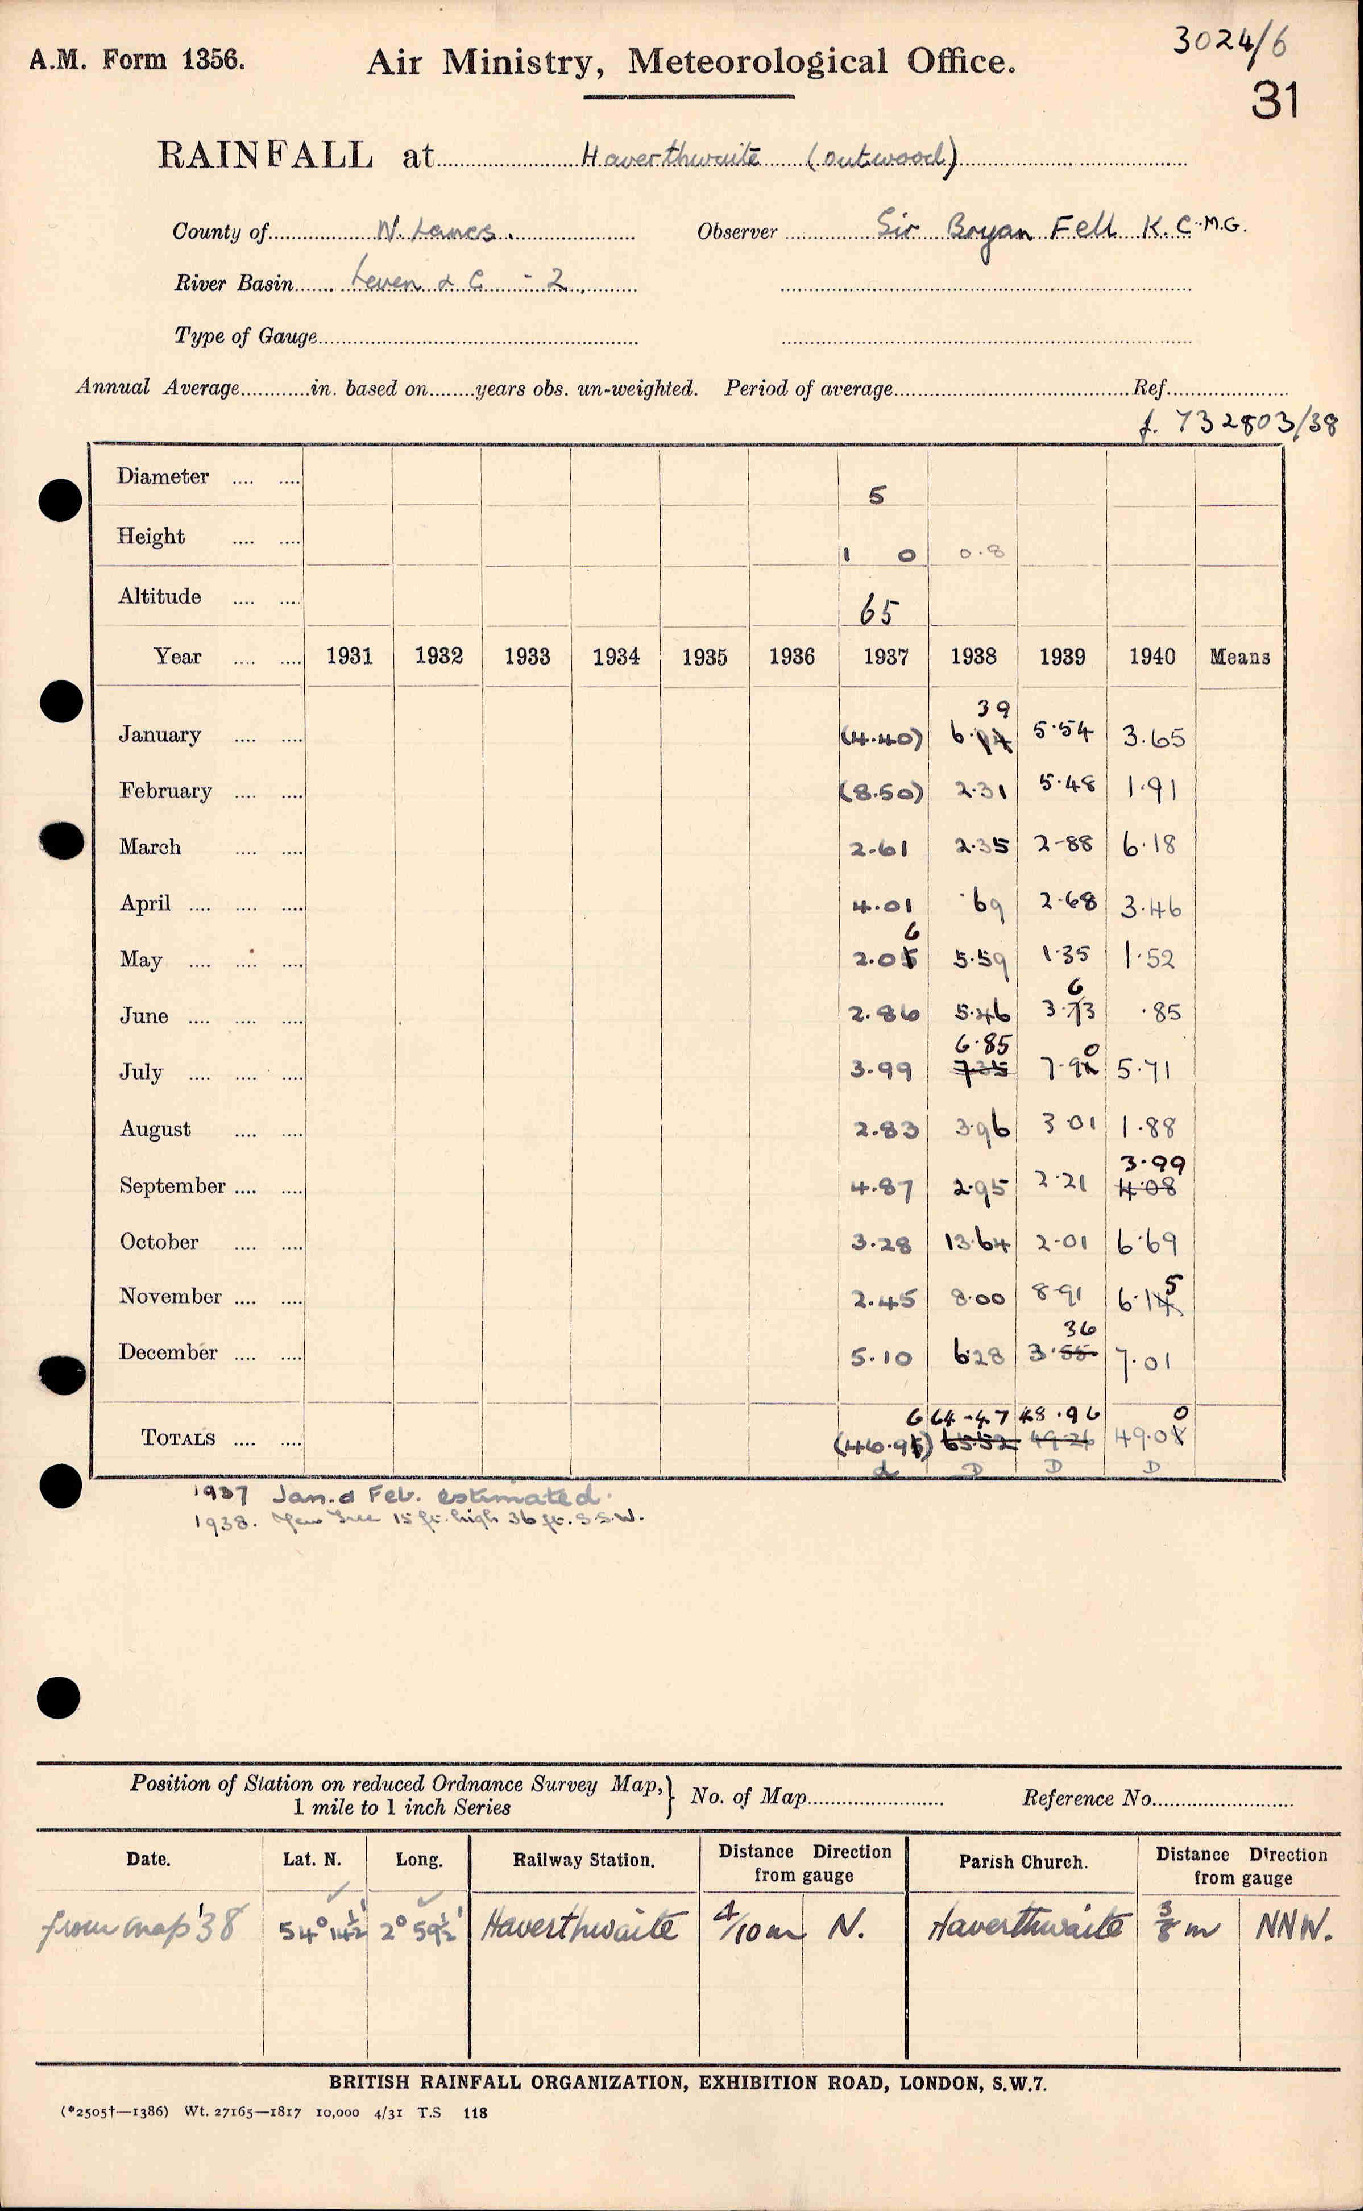 3024/6
A.M. Form 1356. Air Ministry, Meteorological Office.
31
RAINFALL at Haverthwaite (outwood)
County of N. Lancs. Observer Sir Bryan Fell K.C.M.G.
River Basin Leven & C - 2
Type of Gauge
Annual Average in. based on years obs. un-weighted. Period of average Ref.
f. 732803/38
Diameter 5
Height 1 0 0.8
Altitude 65
Year 1931 1932 1933 1934 1935 1936 1937 1938 1939 1940 Means
39
January (4.40) 6. 5.54 3.65
February (8.50) 2.31 5.48 1.91
March 2.61 2.35 2.88 6.18
April 4.01 .69 2.68 3.46
6
May 2.05 5.59 1.35 1.52
6
June 2.86 5.46 3.73 .85
6.85 0
July 3.99 7.35 7.9 5.71
August 2.83 3.96 3.01 1.88
3.99
September 4.87 2.95 2.21 4.08
October 3.28 13.64 2.01 6.69
5
November 2.45 8.00 8.91 6.14
36
December 5.10 6.28 3.55 7.01
6 64.47 48.96 0
TOTALS (46.95) 65.52 49.26 49.08
d D D D
1937 Jan. & Feb. estimated.
1938. Yew Tree 15 ft. high 36 ft. S.S.W.
Position of Station on reduced Ordnance Survey Map, } No. of Map Reference No.
1 mile to 1 inch Series
Date. Lat. N. Long. Railway Station. Distance Direction from gauge Parish Church. Distance Direction from gauge
from map '38 54° 14½' 2° 59½' Haverthwaite 4/10 m N. Haverthwaite 3/8 m NNW.
BRITISH RAINFALL ORGANIZATION, EXHIBITION ROAD, LONDON, S.W.7.
(*2505†—1386) Wt. 27165—1817 10,000 4/31 T.S 118